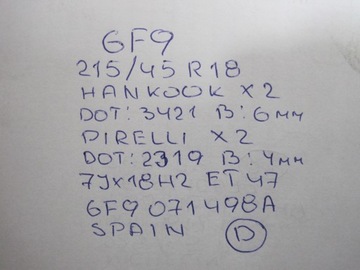 6F9
215/45 R18
HANKOOK X2
DOT: 3421 B: 6мм
PIRELLI X2
DOT: 2319 B: 4мм
7Jx18H2 ET47
6F9 071498A
SPAIN D